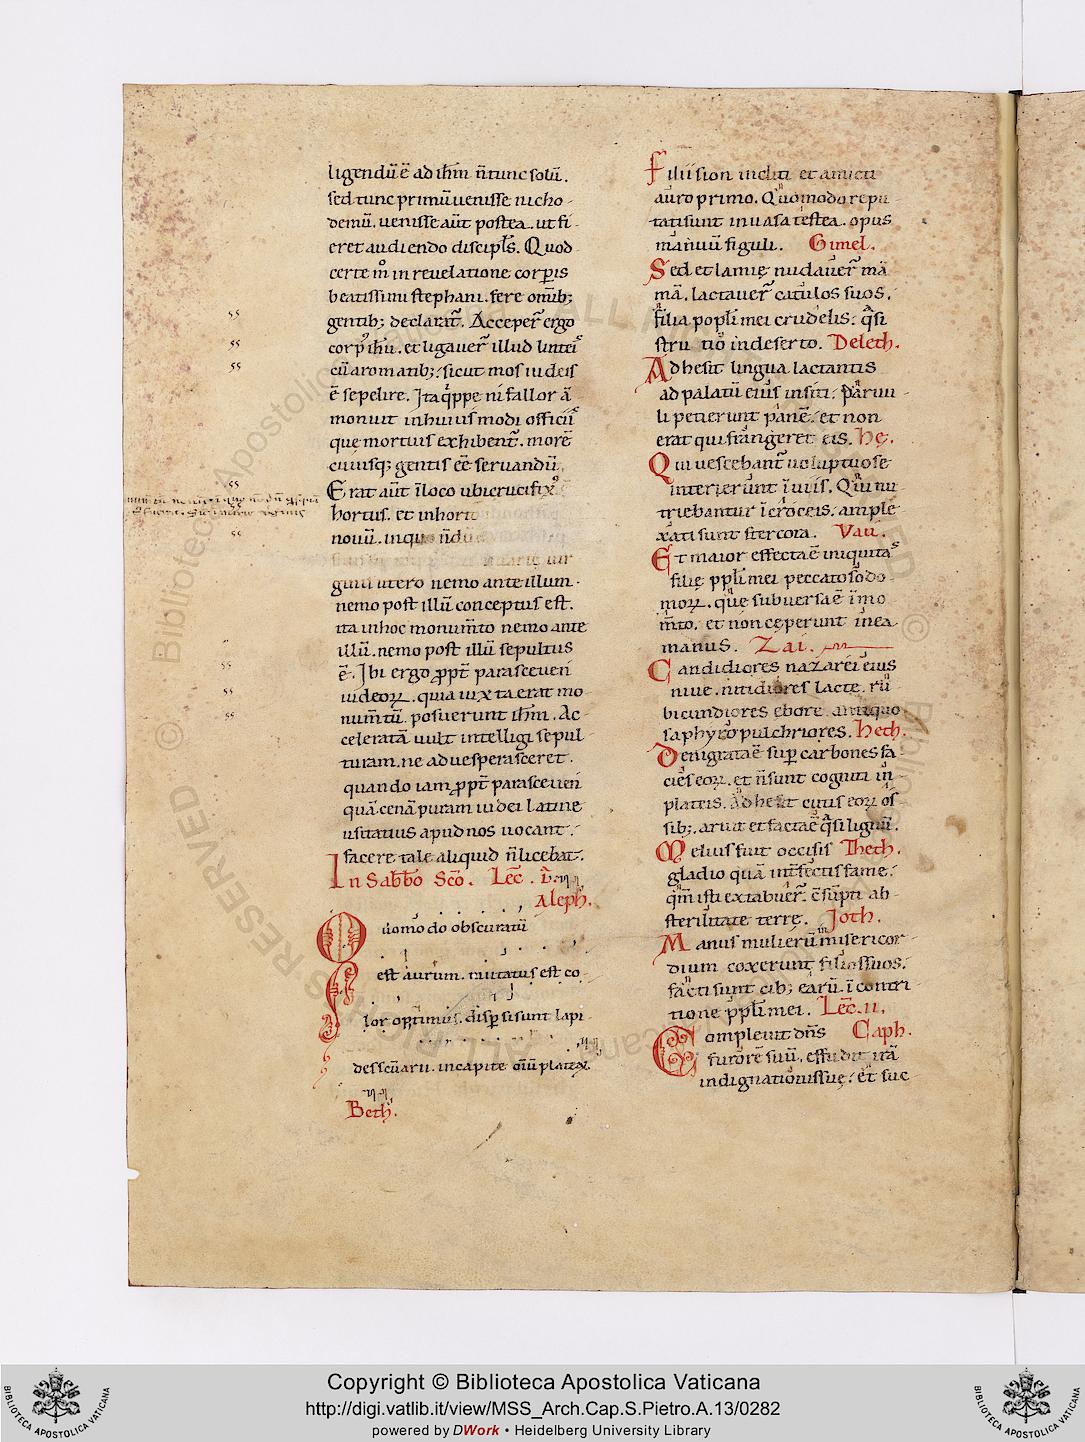 ligendũ ẽ ad ihm̃ ñ tunc solũ.
sed tunc primũ uenisse nicho-
demũ. uenisse aũt postea. ut fi-
eret audiendo discipl̃s. Quod
certe m̊ in reuelatione corp̃is
beatissimi stephani. fere omib;
gentib; declarat̃. Acceper̃ ergo
corp' ihũ. et ligauer̃ illud lintei'
cũ aromatib; sicut mos iudeis
ẽ sepelire. Itaq̃ppe ni fallor ã
monuit in huiusmodi officiĩ
que mortuis exhibent̃. morẽ
cuiusq; gentis eẽ seruandũ.
Erat aũt ĩ loco ubi crucifix'
hortus. et in horto
nouũ. in quo ñdũ
mariẽ uir
ginis utero nemo ante illum.
nemo post illũ conceptus est.
ita in hoc monum̃to nemo ante
illũ. nemo post illũ sepultus
ẽ. Ibi ergo ꝓpt̃ parasceuen
iudeoꝝ. quia iuxta erat mo
num̃tũ. posuerunt ihm̃. Ac
celeratã uult intelligi sepul-
turam. ne aduesperasceret.
quando iam ꝓpt̃ parasceuen
quã cenã puram iudei latine
usitatius apud nos uocant.
facere tale aliquid ñ licebat.
In Sabb̃o Sc̃o. Lec̃. i.
Aleph.
Quomodo obscuratũ
est aurum. mutatus est co-
lor optimus. disp̃si sunt lapi-
des sc̃uarii. in capite om̃iũ plateaꝝ.
Beth.
Filii sion incliti et amicti
auro primo. Quomodo repu-
tati sunt in uasa testea. opus
manuũ figuli. Gimel.
Sed et lamię nudauer̃ mã
mã. lactauer̃ catulos suos.
filia popl̃i mei crudelis. q̃si
strutiõ in deserto. Deleth.
Adhesit lingua lactantis
ad palatũ eius in siti. Paruu-
li petierunt panẽ. et non
erat qui frangeret eis. Hę.
Qui uescebant̃ uoluptuose
interierunt ĩ uiis. Qui nu
triebantur ĩ croceis. ample
xati sunt stercora. Vau.
Et maior effecta ẽ iniquita'
filię ppl̃i mei peccato sodo-
moꝝ. que subuersa ẽ ĩ mo
m̃to. et non ceperunt in ea
manus. Zai.
Candidiores nazarei eius
niue. nitidiores lacte. ru
bicundiores ebore antiquo
saphyro pulchriores. Heth.
Denigrata ẽ sup̃ carbones fa-
cies eoꝝ. et ñ sunt cogniti in
plateis. Adhesit cutis eoꝝ os
sib;. aruit et facta ẽ q̃si lignũ.
Melius fuit occisis Theth.
gladio quã int̃fectis fame.
qm̃ isti extabuer̃. cõsũpti ab
sterilitate terre. Joth.
Manus mulierũ misericor-
dium coxerunt filios suos.
facti sunt cib; earũ. ĩ contri-
tione ppl̃i mei. Lec̃. ii.
Compleuit dñs Caph.
furorẽ suũ. effudit irã
indignationis suę. et suc-
Copyright © Biblioteca Apostolica Vaticana
http://digi.vatlib.it/view/MSS_Arch.Cap.S.Pietro.A.13/0282
powered by DWork • Heidelberg University Library
BIBLIOTECA APOSTOLICA VATICANA
BIBLIOTECA APOSTOLICA VATICANA